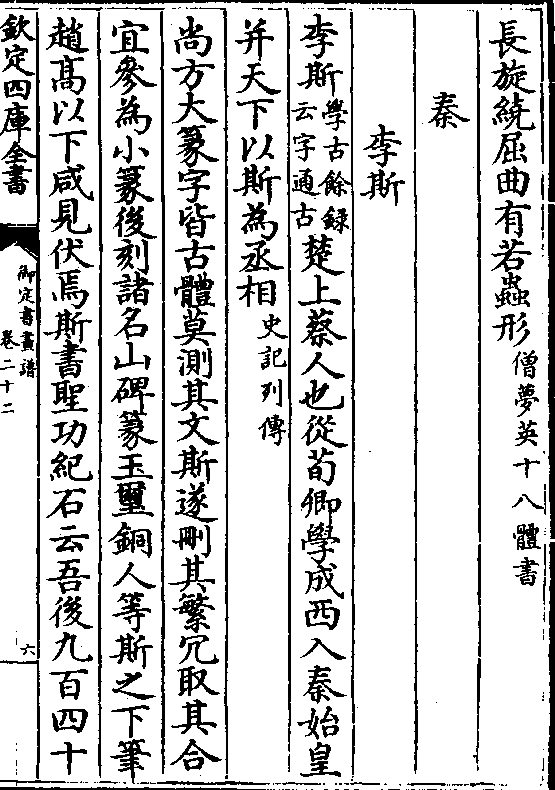 長旋繞屈曲有若蟲形僧夢英十八體書
秦
李斯
李斯學古餘錄云字通古楚上蔡人也從荀卿學成西入秦始皇
并天下以斯為丞相史記列傳
尚方大篆字皆古體莫測其文斯遂刪其繁冗取其合
宜參為小篆後刻諸名山碑篆玉璽銅人等斯之下筆
趙高以下咸見伏焉斯書聖功紀石云吾後九百四十
欽定四庫全書
御定書畫譜
卷二十二
六